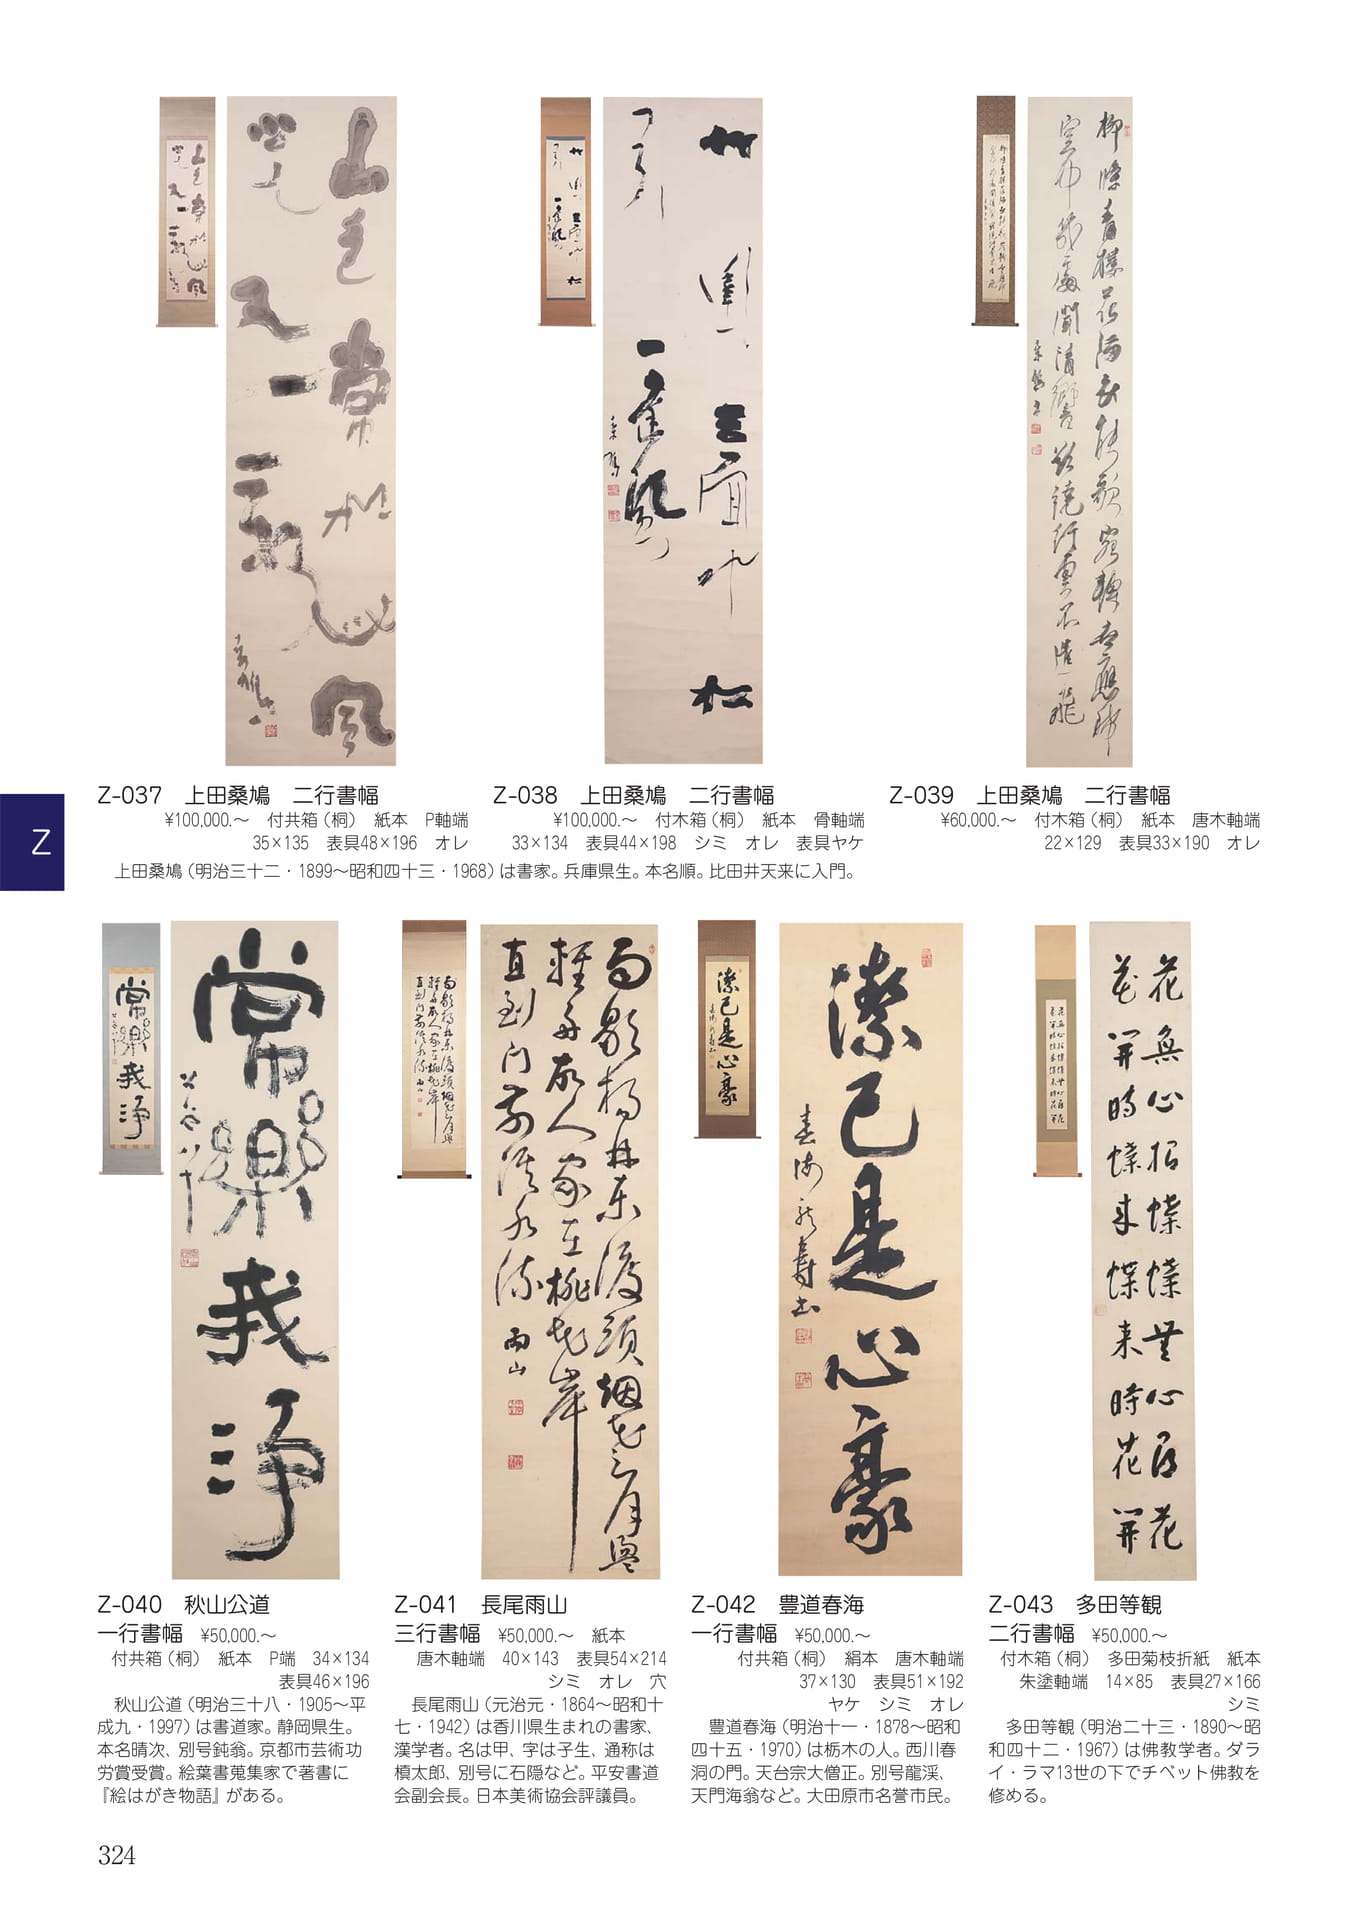 Z-037 上田桑鳩 二行書幅
¥100,000.～ 付共箱（桐） 紙本 P軸端
35×135 表具48×196 オレ
Z-038 上田桑鳩 二行書幅
¥100,000.～ 付木箱（桐） 紙本 骨軸端
33×134 表具44×198 シミ オレ 表具ヤケ
Z-039 上田桑鳩 二行書幅
¥60,000.～ 付木箱（桐） 紙本 唐木軸端
22×129 表具33×190 オレ
上田桑鳩（明治三十二・1899～昭和四十三・1968）は書家。兵庫県生。本名順。比田井天来に入門。
Z
常樂我淨
雨歇楊林東渡頭烟花三月盪
輕舟故人家在桃花岸
直到門前溪水流
雨山
潔己是心豪
春海
花無心招蝶蝶無心尋花
花開時蝶来蝶来時花開
Z-040 秋山公道
一行書幅 ¥50,000.～
付共箱（桐） 紙本 P端 34×134
表具46×196
秋山公道（明治三十八・1905～平
成九・1997）は書道家。静岡県生。
本名晴次、別号鈍翁。京都市芸術功
労賞受賞。絵葉書蒐集家で著書に
『絵はがき物語』がある。
Z-041 長尾雨山
三行書幅 ¥50,000.～ 紙本
唐木軸端 40×143 表具54×214
シミ オレ 穴
長尾雨山（元治元・1864～昭和十
七・1942）は香川県生まれの書家、
漢学者。名は甲、字は子生、通称は
槙太郎、別号に石隠など。平安書道
会副会長。日本美術協会評議員。
Z-042 豊道春海
一行書幅 ¥50,000.～
付共箱（桐） 絹本 唐木軸端
37×130 表具51×192
ヤケ シミ オレ
豊道春海（明治十一・1878～昭和
四十五・1970）は栃木の人。西川春
洞の門。天台宗大僧正。別号龍渓、
天門海翁など。大田原市名誉市民。
Z-043 多田等観
二行書幅 ¥50,000.～
付木箱（桐） 多田菊枝折紙 紙本
朱塗軸端 14×85 表具27×166
シミ
多田等観（明治二十三・1890～昭
和四十二・1967）は佛教学者。ダラ
イ・ラマ13世の下でチベット佛教を
修める。
324